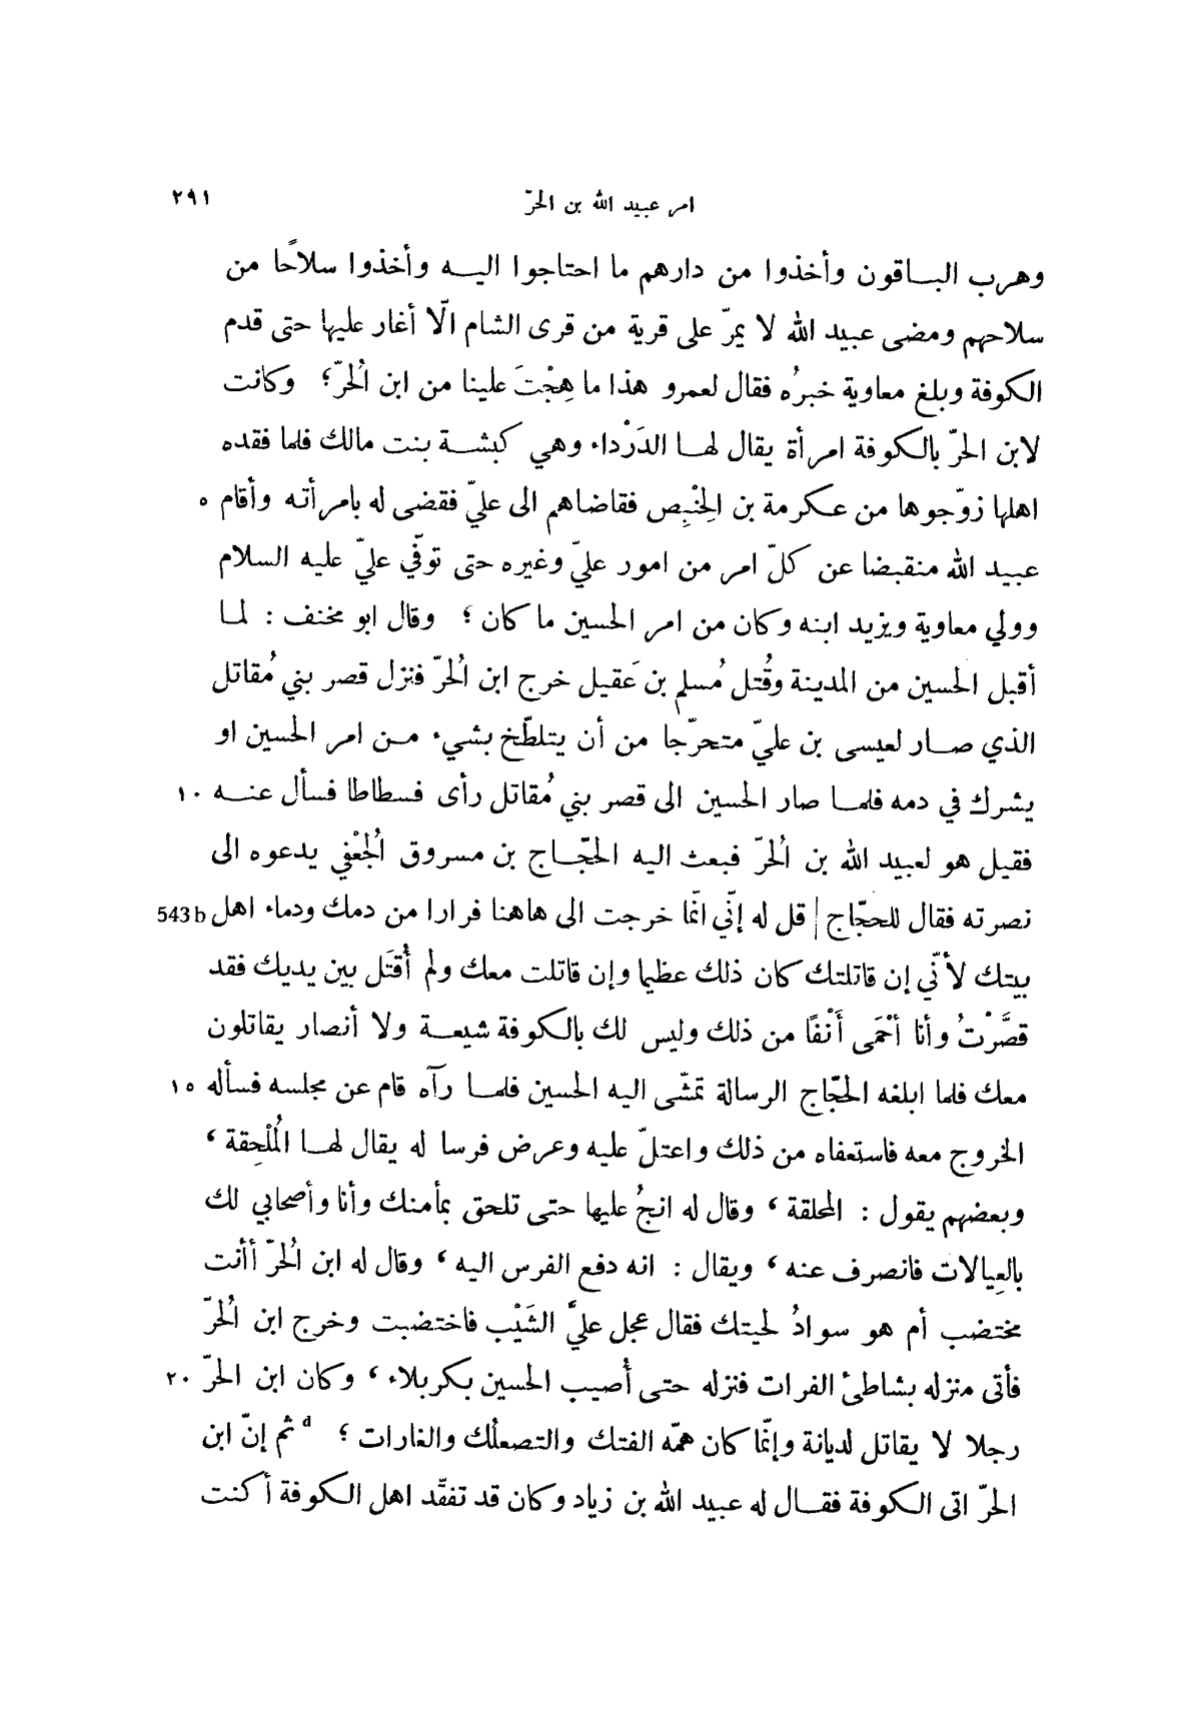 امر عبيد الله بن الحرّ ٢٩١
وهرب الباقون وأخذوا من دارهم ما احتاجوا اليه وأخذوا سلاحًا من
سلاحهم ومضى عبيد الله لا يمرّ على قرية من قرى الشام الّا أغار عليها حتى قدم
الكوفة وبلغ معاوية خبرُه فقال لعمرو هذا ما هِجْتَ علينا من ابن الُحرّ؛ وكانت
لابن الحرّ بالكوفة امرأة يقال لها الدَرْداء وهي كبشة بنت مالك فلما فقده
اهلها زوّجوها من عكرمة بن الِخْنبِص فقاضاهم الى عليّ فقضى له بامرأته وأقام ٥
عبيد الله منقبضا عن كلّ امر من امور عليّ وغيره حتى توفّي عليّ عليه السلام
وولي معاوية ويزيد ابنه وكان من امر الحسين ما كان ؛ وقال ابو مخنف : لما
أقبل الحسين من المدينة وقُتل مُسلم بن عَقيل خرج ابن الُحرّ فنزل قصر بني مُقاتل
الذي صار لعيسى بن عليّ متحرّجا من أن يتلطّخ بشيء من امر الحسين او
يشرك في دمه فلما صار الحسين الى قصر بني مُقاتل رأى فسطاطا فسأل عنه ١٠
فقيل هو لعبيد الله بن الُحرّ فبعث اليه الحجّاج بن مسروق الُجعْفي يدعوه الى
نصرته فقال للحجّاج | قل له إنّي انّما خرجت الى هاهنا فرارا من دمك ودماء اهل 543b
بيتك لأنّي إن قاتلتك كان ذلك عظيما وإن قاتلت معك ولم أُقتَل بين يديك فقد
قصَّرْتُ وأنا أحْمَى أَنْفًا من ذلك وليس لك بالكوفة شيعة ولا أنصار يقاتلون
معك فلما ابلغه الحجّاج الرسالة تمشّى اليه الحسين فلما رآه قام عن مجلسه فسأله ١٥
الخروج معه فاستعفاه من ذلك واعتلّ عليه وعرض فرسا له يقال لها الُملْحِقة ،
وبعضهم يقول : المحلقة ، وقال له انجُ عليها حتى تلحق بمأمنك وأنا وأصحابي لك
بالعِيالات فانصرف عنه ، ويقال : انه دفع الفرس اليه ، وقال له ابن الُحرّ أأنت
مختضب أم هو سوادُ لحيتك فقال عجل عليَّ الشَيْب فاختضبت وخرج ابن الُحرّ
فأتى منزله بشاطئ الفرات فنزله حتى أُصيب الحسين بكربلاء ، وكان ابن الحرّ ٢٠
رجلا لا يقاتل لديانة وإنّما كان همّه الفتك والتصعلُك والغارات ؛ d ثم إنّ ابن
الحرّ اتى الكوفة فقال له عبيد الله بن زياد وكان قد تفقّد اهل الكوفة أكنت